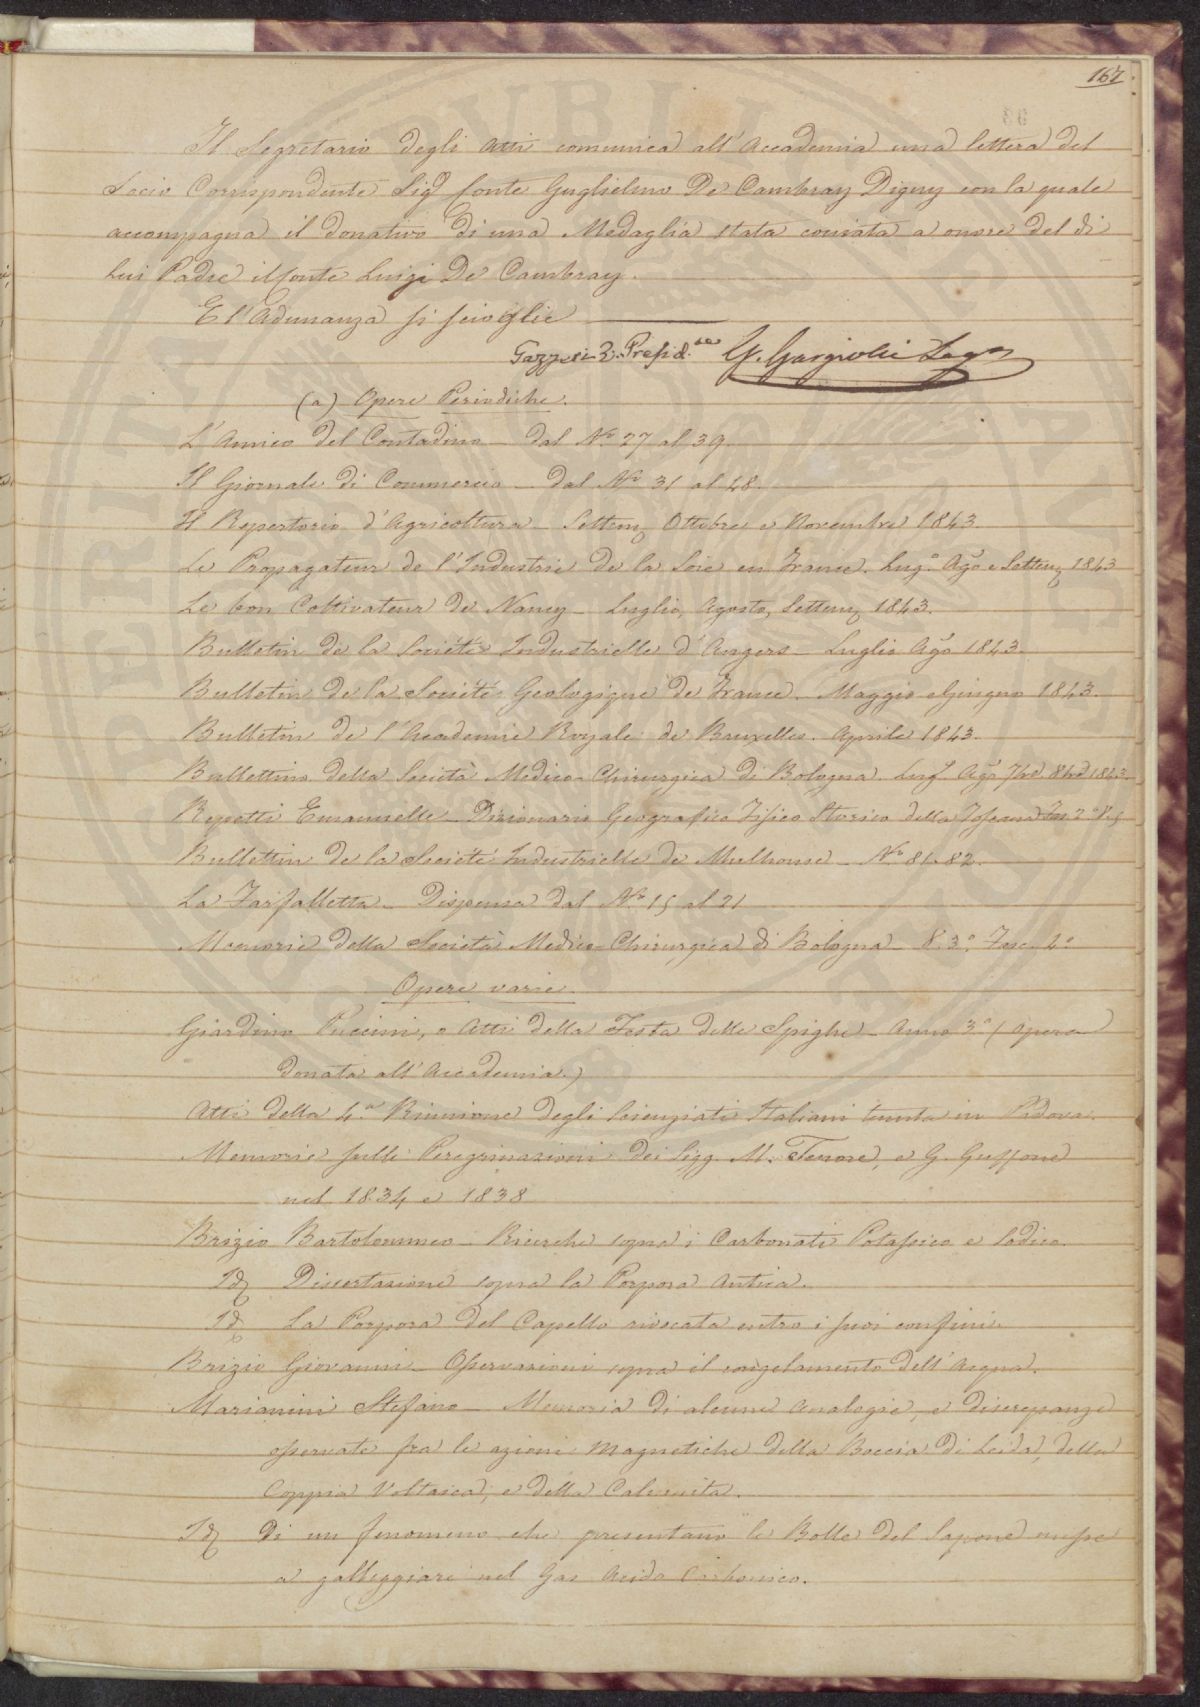 167
Il Segretario degli Atti comunica all'Accademia una lettera del
Socio Corrispondente Sigr Conte Guglielmo De Cambray Digny con la quale
accompagna il donativo di una Medaglia stata coniata a onore del di
Lui Padre il Conte Luigi De Cambray.
E l'Adunanza si scioglie
Gazzeri 2. Presid.te G. Gargiolli Seg.o
(a) Opere Periodiche.
L'Amico del Contadino – dal No 27 al 39.
Il Giornale di Commercio – dal No 31 al 48.
Il Repertorio d'Agricoltura – Settem. Ottobre e Novembre 1843
Le Propagateur de l'Industrie de la Soie en France. Lug.o Ago e Settem. 1843
Le bon Coltivateur de Nancy – Luglio, Agosto, Settem. 1843.
Bulletin de la Société Industrielle d'Angers – Luglio Ago 1843.
Bulletin de la Société Geologique de France – Maggio e Giugno 1843.
Bulletin de l'Academie Royale de Bruxelles. Aprile 1843.
Bullettino della Società Medico-Chirurgica di Bologna. Lugo Ago 7bre 8bre 1843.
Repetti Emanuelle – Dizionario Geografico Fisico Storico della Toscana
Bullettin de la Société Industrielle de Mulhouse – No 81. 82.
La Farfalletta – Dispensa dal No 15 al 21
Memorie della Società Medico-Chirurgica di Bologna – V. 3o. Fasc. 4o
Opere varie.
Giardino Puccini, o Atti della Festa delle Spighe – Anno 3.o (opera
donata all'Accademia.)
Atti della 4.a Riunione degli Scienziati Italiani tenuta in Padova.
Memorie sulle Peregrinazioni dei Sigg. M. Tenore, e G. Gussone
nel 1834 e 1838
Brizio Bartolommeo – Ricerche sopra i Carbonati Potassico e Sodico.
Id. Dissertazione sopra la Porpora Antica.
Id. La Porpora del Capello rivocata entro i suoi confini.
Brizio Giovanni – Osservazioni sopra il congelamento dell'Acqua.
Marianini Stefano – Memoria di alcune Analogie, e discrepanze
osservate fra le azioni Magnetiche della Boccia di Leida, della
Coppia Voltaica, e della Calamita.
Id. Di un fenomeno che presentano le Bolle del Sapone messe
a galleggiare nel Gas Acido Carbonico.